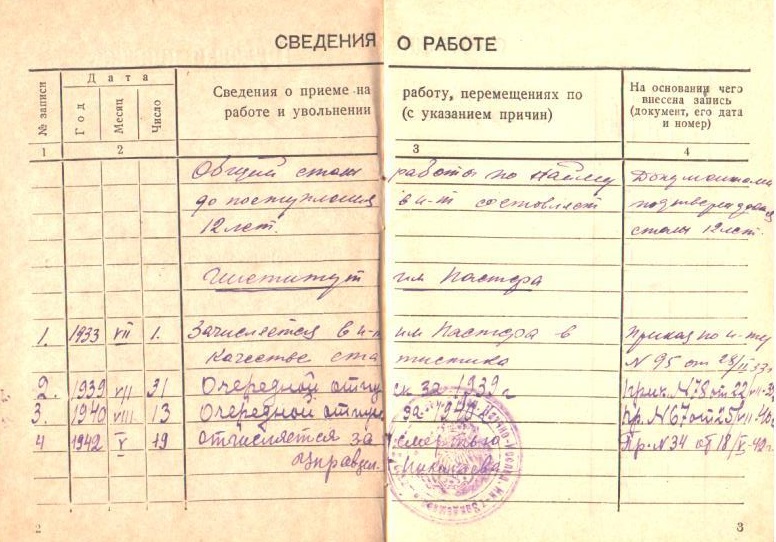 СВЕДЕНИЯ О РАБОТЕ
№ записи
Дата
Год
Месяц
Число
Сведения о приеме на работу, перемещениях по
работе и увольнении (с указанием причин)
На основании чего
внесена запись
(документ, его дата
и номер)
1 2 3 4
Общий стаж работы по найму
до поступления в и-т составляет
12 лет.
Документами
подтвержд
стаж 12 лет.
Институт им Пастера
1. 1933 VII 1. Зачисляется в и-т им Пастера в
качестве статистика
Приказ по и-ту
N 95 от 28/
2. 1939 VII 31 Очередной отпуск за 1939 г
Прик. N 78 от 22
3. 1940 VIII 13 Очередной отпуск за 1940
Пр. N 67 от 25/VII-40г
4 1942 V 19 отчисляется за смертью
Пр. N 34 от 18/V-42г
Управдел. Николаева
2
3